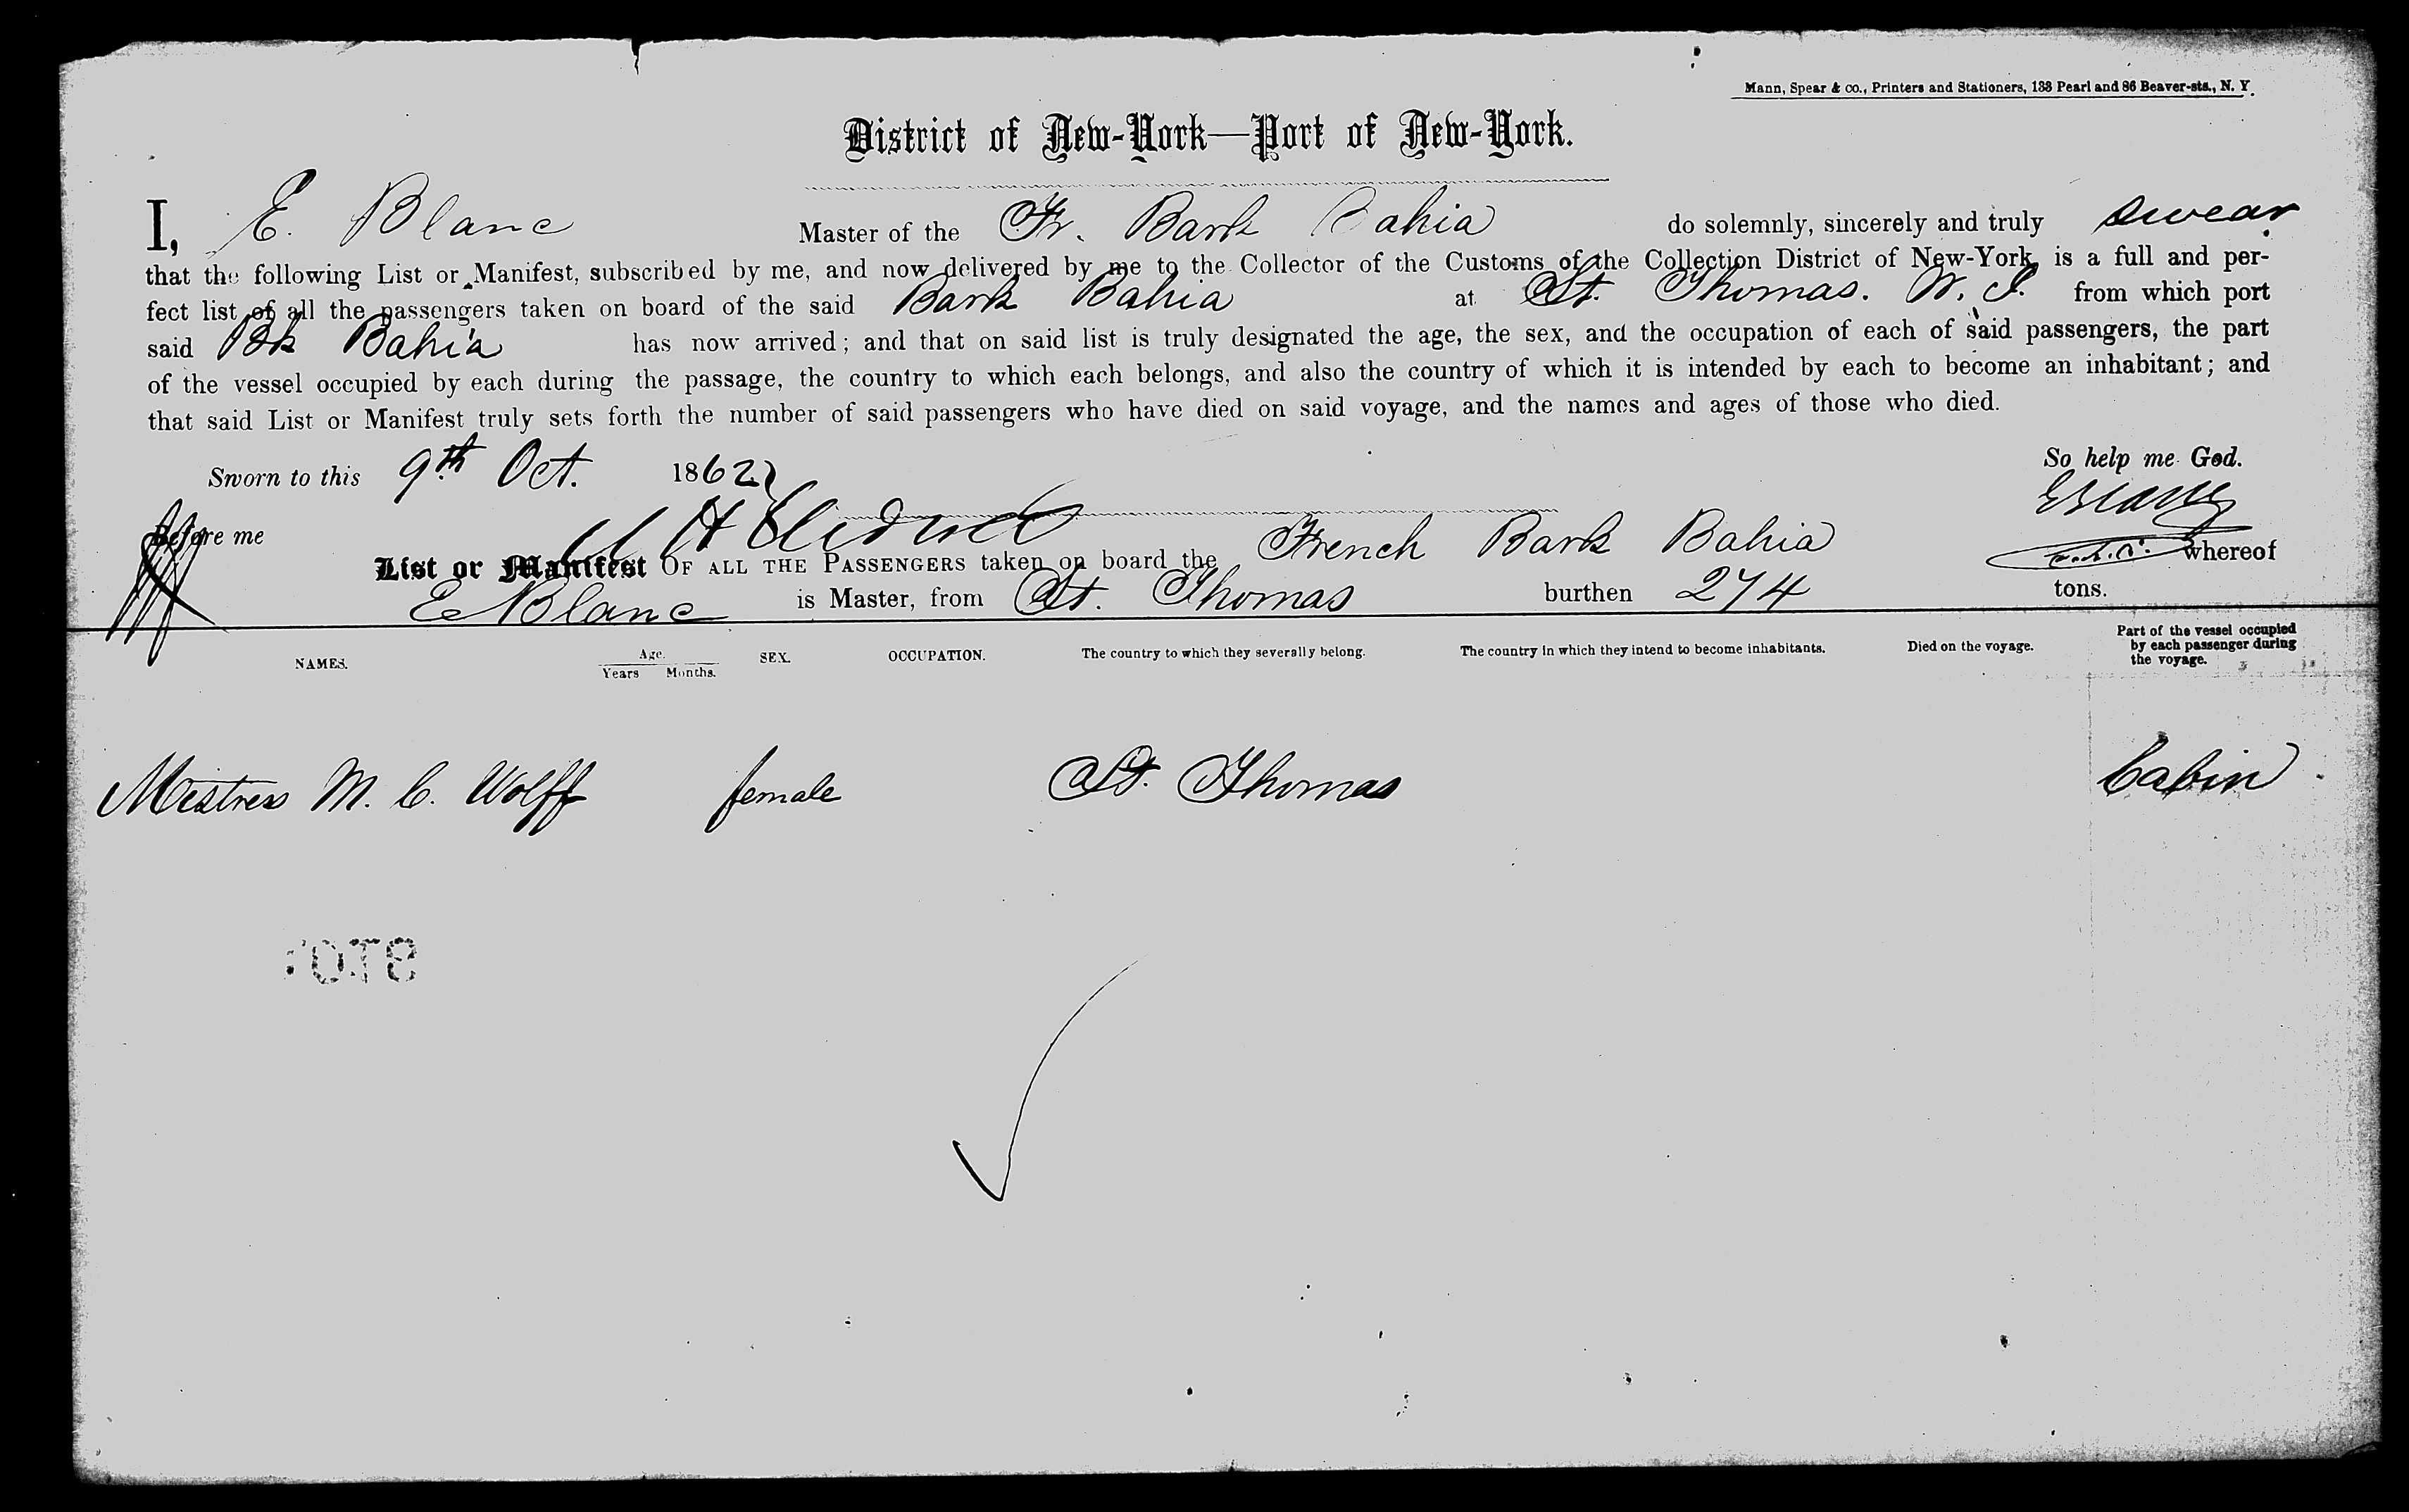 Mann, Spear & co., Printers and Stationers, 133 Pearl and 86 Beaver-sts., N. Y.
District of New-York—Port of New-York.
I, E. Blanc Master of the Fr. Bark Bahia do solemnly, sincerely and truly swear
that the following List or Manifest, subscribed by me, and now delivered by me to the Collector of the Customs of the Collection District of New-York, is a full and per-
fect list of all the passengers taken on board of the said Bark Bahia at St. Thomas. W. I. from which port
said Bk Bahia has now arrived; and that on said list is truly designated the age, the sex, and the occupation of each of said passengers, the part
of the vessel occupied by each during the passage, the country to which each belongs, and also the country of which it is intended by each to become an inhabitant; and
that said List or Manifest truly sets forth the number of said passengers who have died on said voyage, and the names and ages of those who died.
Sworn to this 9th Oct. 1862 So help me God.
E Blanc
Before me
List or Manifest OF ALL THE PASSENGERS taken on board the French Bark Bahia whereof
E Blanc is Master, from St. Thomas burthen 274 tons.
NAMES. Age. Years Months. SEX. OCCUPATION. The country to which they severally belong. The country in which they intend to become inhabitants. Died on the voyage. Part of the vessel occupied by each passenger during the voyage.
Mistress M. C. Wolff female St. Thomas Cabin